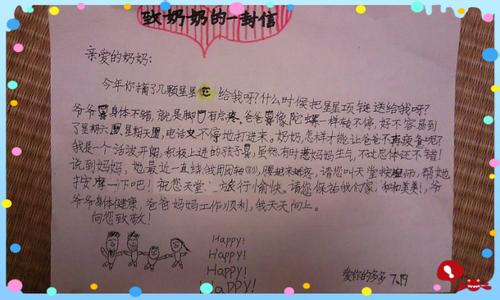 致奶奶的一封信
亲爱的奶奶:
今年你摘了几颗星星 给我呀?什么时候把星星项链送给我呀?
爷爷 身体不错,就是脚 有 疼。爸爸 像陀螺一样转不停,好不容易到
了星期六 ,星期天 ,电话又不停地打进来。奶奶,怎样才能让爸爸不 疲惫呢?
我是一个活泼开朗,积极上进的孩子 ,虽然有时惹妈妈生气,不过总体还不错!
说到妈妈,她最近一直 ,腰越来越 ,请您叫天堂 师,帮她
按摩一下吧!祝您天堂 旅行愉快。请您保祐我们家,和和美美!,爷
爷身体健康,爸爸妈妈工作顺利,我天天向上。
向您致敬!
Happy!
Happy!
Happy!
Happy!
爱你的多多 7.19